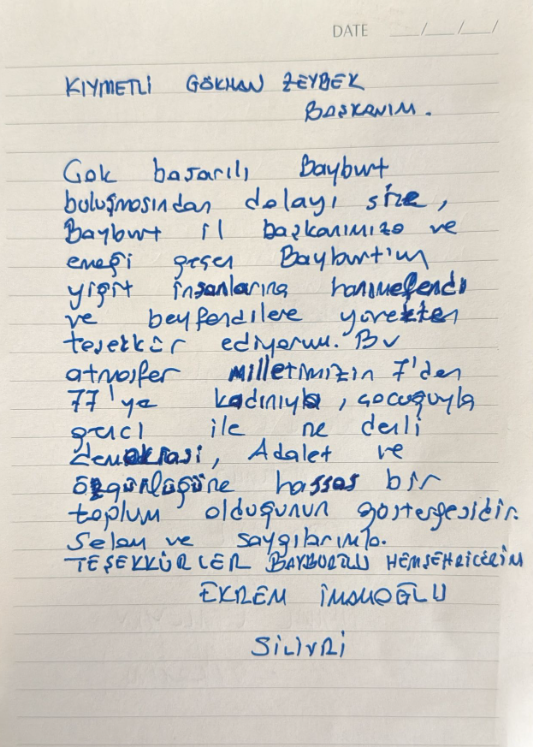 DATE __/__/__/
KIYMETLİ GÖKHAN ZEYBEK
BAŞKANIM.
Çok başarılı Bayburt
buluşmasından dolayı size,
Bayburt il başkanımıza ve
emeği geçen Bayburt'un
yiğit insanlarına hanımefendi
ve beyfendilere yürekten
teşekkür ediyorum. Bu
atmosfer milletimizin 7'den
77'ye kadınıyla, çocuğuyla
genci ile ne denli
demokrasi, Adalet ve
özgürlüğüne hassas bir
toplum olduğunun göstergesidir.
Selam ve saygılarımla.
TEŞEKKÜRLER BAYBURTLU HEMŞEHRİLERİM
EKREM İMAMOĞLU
SİLİVRİ